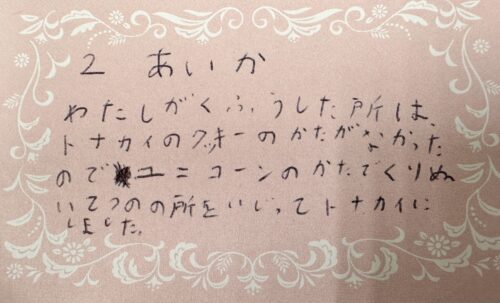 2 あいか
わたしがくふうした所は、
トナカイのクッキーのかたがなかった
のでユニコーンのかたでくりぬ
いてつのの所をいじってトナカイに
しました。